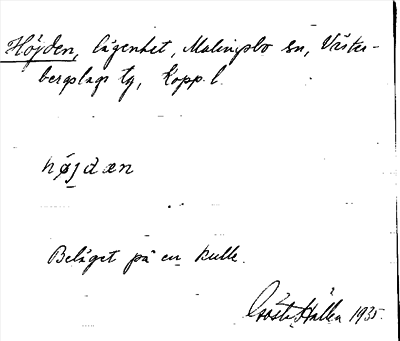 Höjden, lägenhet, Malingsbo sn, Väster-
bergslags tg, Kopp. l.
højdæn
Beläget på en kulle.
Gösta Hallen 1935.